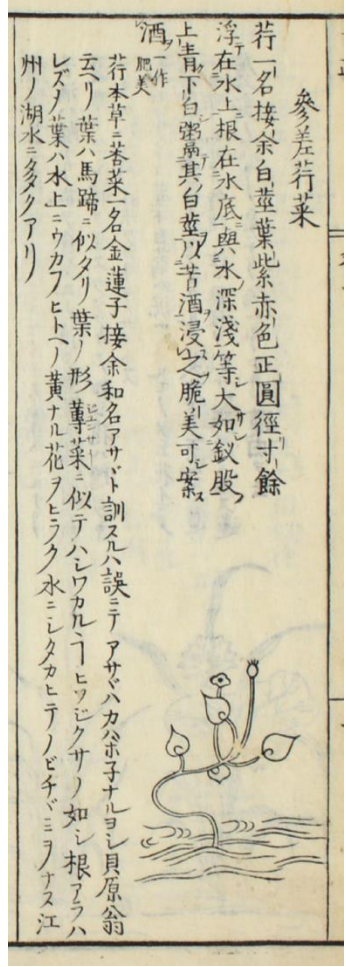 參差荇菜
荇一名接余白莖葉紫赤色正圓徑寸餘
浮テ在水上根在水底ニ與水ノ深淺等シ大サ如釵股ノ
上青下白鬻其白莖ヲ以苦酒浸之脆美可案ス
酒ヲ一作肥美
荇本草ニ莕菜一名金蓮子接余和名アサヾト訓スルハ誤ニテアサヾハカハホ子ナルヨシ貝原翁
云ヘリ葉ハ馬蹄ニ似タリ葉ノ形蓴菜ニ似テハシワカルヿヒツジクサノ如シ根アラハ
レズノ葉ハ水上ニウカフヒトヘノ黄ナル花ヲヒラク水ニシタカヒテノビチヾミヲナス江
州ノ湖水ニ多クアリ